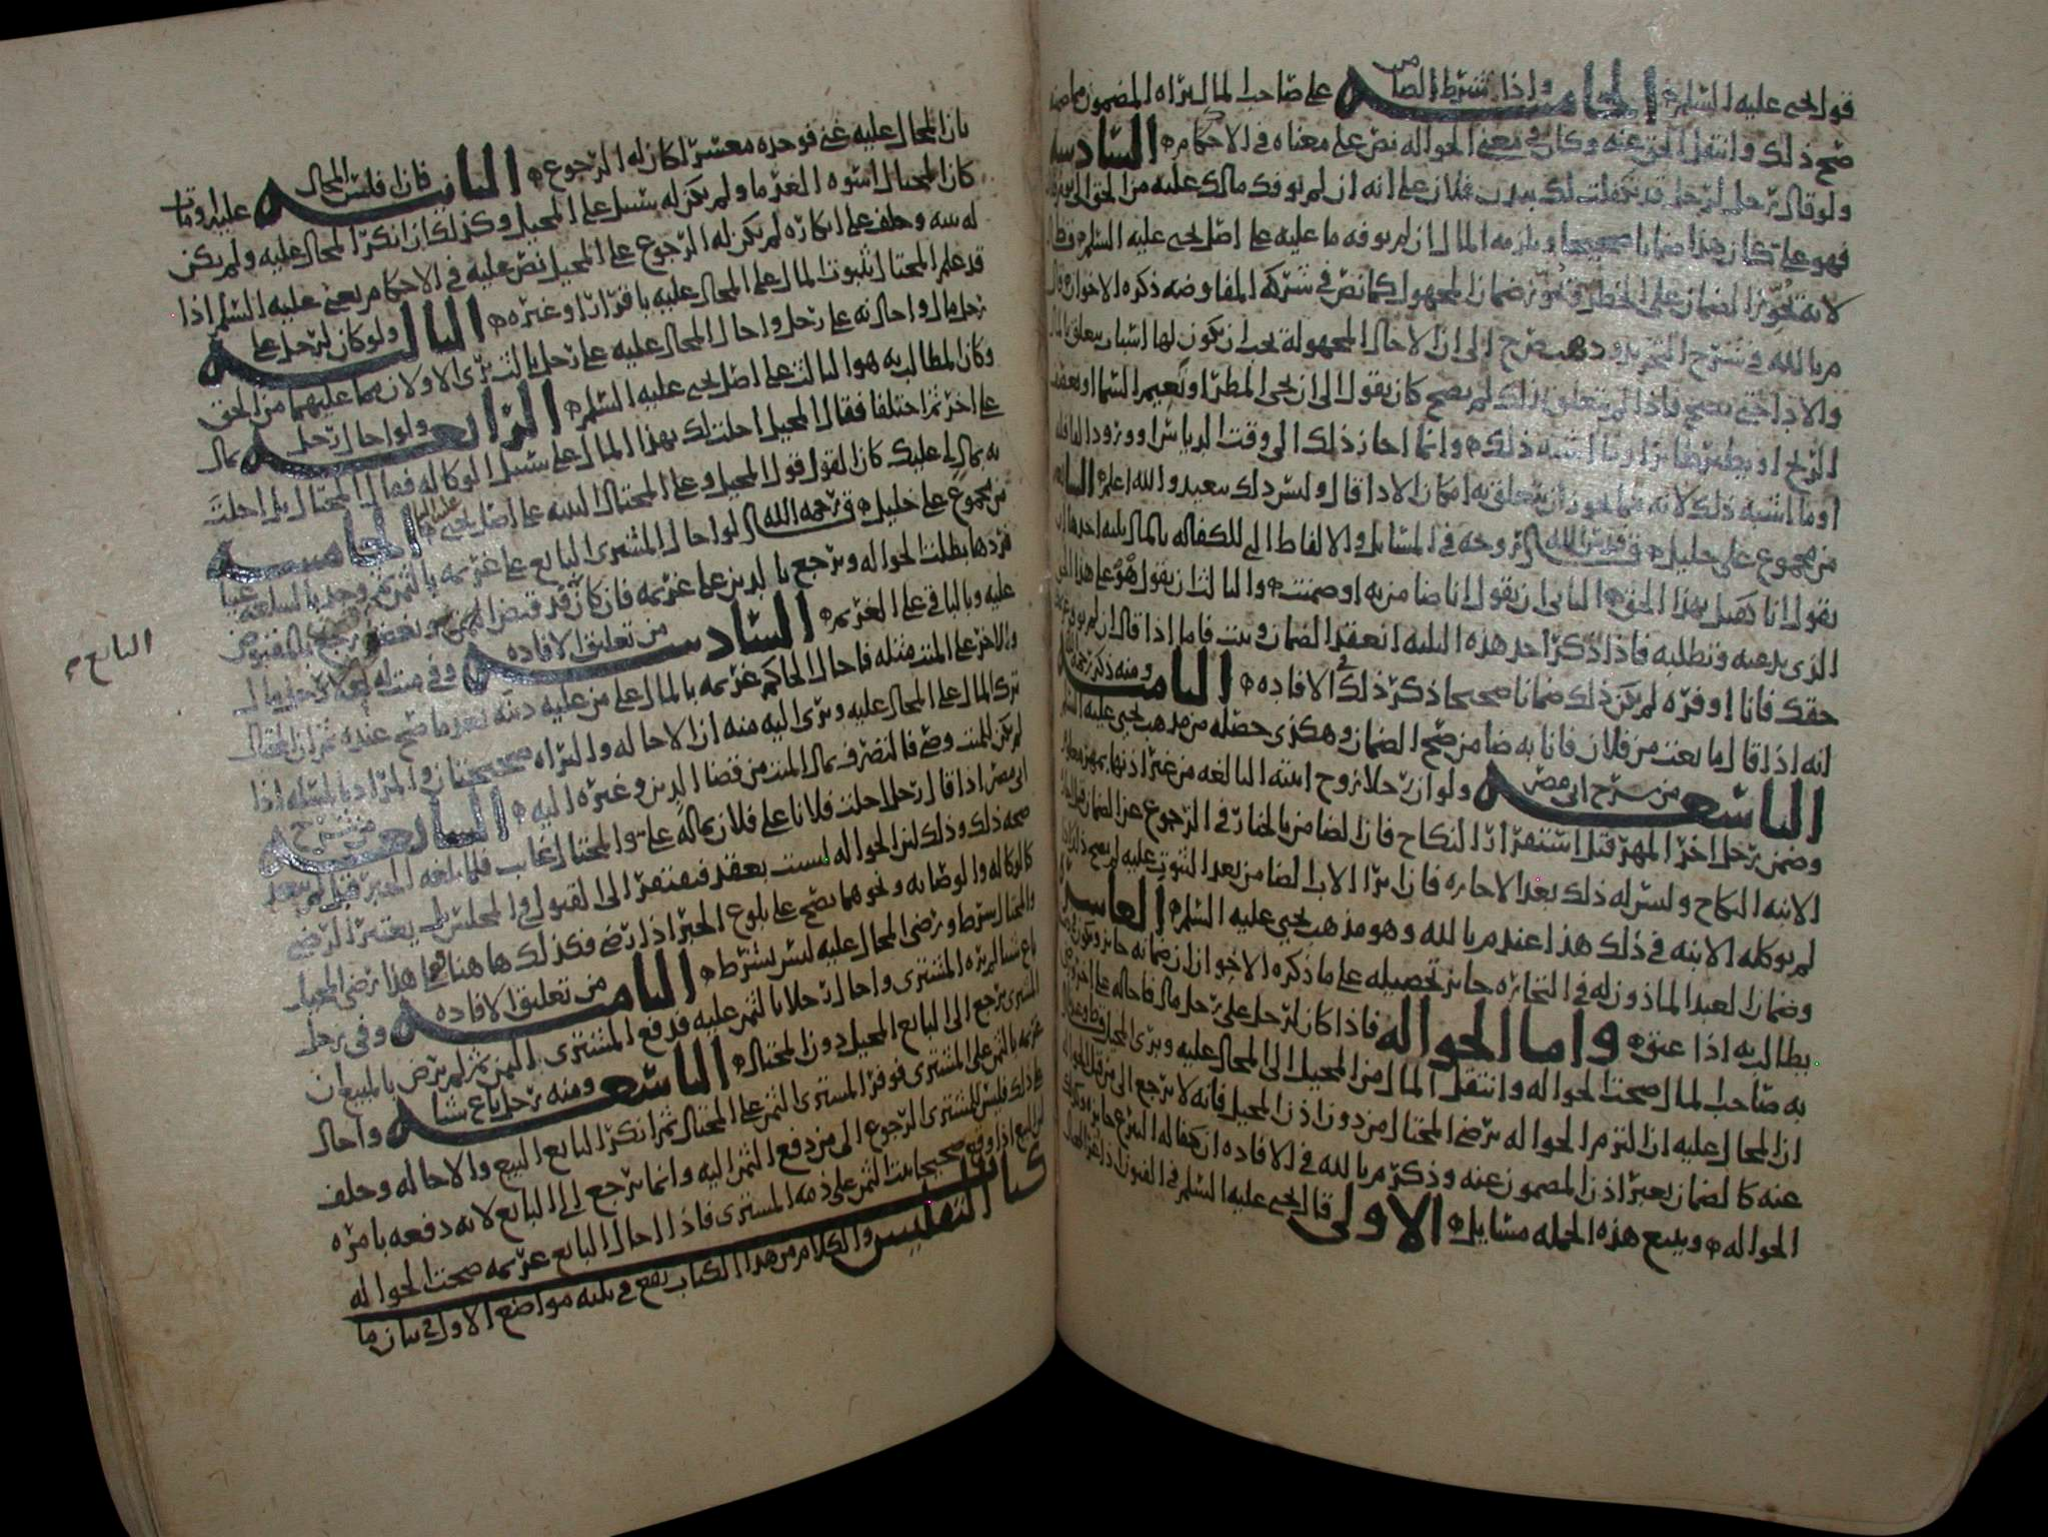 قول يحيى عليه السلم الخامسة واذا شرط الضامن على صاحب المال براه المضمون مما ضمنه
صح ذلك وانتقل الحق عنه وكان في معنى الحواله نص على معناه في الاحكام السادسه
ولو قال رجل لرجل قد تكفلت لك ببدن فلان على انه ان لم يوفك مالك عليه من الحق الى يوم
فهو علي كان هذا ضمانا صحيحا ويلزمه المال ان لم يوفه ما عليه على اصل يحيى عليه السلم
لانه يجوز الضمان على الخطر ويجوز ضمان المجهول كما نص في شركه المفاوضه ذكره الاخوان وقال
م بالله في شرح التجريد ودهب ح الى ان الاجال المجهولة يجب ان يكون لها اسباب يتعلق
والاداحتى يصح فاذا لم يتعلق بذلك لم يصح كان يقول الى ان يجى المطر او تغيم السما او تعصف
الريح او يطير طائر او ما اشبه ذلك وانما اجاز ذلك الى وقت الدياس او ورود القافله
او ما اشبه ذلك لانه مما يجوز ان يتعلق به امكان الادا قال وليس ذلك ببعيد والله اعلم السابعه
من مجموع على خليل قال قدس الله روحه في المسايل والالفاظ التي للكفاله بالمال ثلثه احدها ان
يقول انا كفيل بهذا الحق الثاني ان يقول انا ضامن به او ضمنت والثالث ان يقول هو علي هذا الحق
الذي يدعيه وتطلبه فاذا ذكر احد هذه الثلثه انعقد الضمان وثبت فاما اذا قال ان لم يوف عن
حقك فانا اوفره لم يكن ذلك ضمانا صحيحا ذكر ذلك في الافاده الثامنه ومنه ذكر رحمه الله
انه اذا قال ما بعت من فلان فانا به ضامن صح الضمان وهكذى حصله من مذهب يحيى عليه السلم
التاسعه من شرح ابي مضر ولو ان رجلا زوج ابنته البالغه من غير اذنها بمهر معلوم
وضمن رجل اخر المهر قبل استقرار النكاح فان الضامن بالخيار في الرجوع عن الضمان قبل
الابنه النكاح وليس له ذلك بعد الاجازه فان ابرا الاب الضامن بعد الثبوت عليه لم يصح ذلك
لم يوكله الابنه في ذلك هذا عند م بالله وهو مذهب يحيى عليه السلم العاشره
وضمان العبد الماذون له في التجاره جايز تحصيله على ما ذكره الاخوان ان ضمانه جايز ويكون
يطالب به اذا عتق واما الحواله فاذا كان لرجل على رجل مال فاحاله على اخر
به صاحب المال صحت الحواله وانتقل المال من المحيل الى المحال عليه وبرى المحيل
ان المحال عليه ان التزم الحواله برضى المحتال من دون اذن المحيل فانه لا يرجع الى
عنه كالضمان بغير اذن المضمون عنه وذكر م بالله في الافاده ان كفاله التبرع جايزه
الحواله ويتبع هذه الجمله مسايل الاولى قال يحيى عليه السلم في الفنون اذا غر المحال
بان المحال عليه غني فوجده معسرا كان له الرجوع الثانيه فان افلس المحال عليه او مات
كان المحتال اسوة الغرما ولم يكن له سبيل على المحيل وكذلك ان انكر المحال عليه ولم يكن
له بينه وحلف على انكاره لم يكن له الرجوع على المحيل نص عليه في الاحكام يعني عليه السلم اذا
قد علم المحتال بثبوت المال على المحال عليه باقرار او غيره الثالثه ولو كان لرجل على
رجل مال واحاله به على رجل واحال المحال عليه على رجل ثالث برى الاولان مما عليهما من الحق
وكان المطالب به هو الثالث على اصل يحيى عليه السلم الرابعه ولو احال رجل بمال
على اخر ثم اختلفا فقال المحيل احلتك بهذا المال على سبيل الوكاله فقال المحتال بل احلتني
به بمال لي عليك كان القول قول المحيل وعلى المحتال البينه على اصل يحيى عليه السلم الخامسه
من مجموع على خليل قال رحمه الله لو احال المشترى البايع على غريمه بالثمن ثم وجد بالسلعه عيبا
فردها بطلت الحواله ويرجع بالدين على غريمه فان كان قد قبض الثمن او بعضه رجع بالمقبوض
البايع
عليه وبالباقي على الغريم السادسه من تعليق الافاده وفي ميت له على رجل مال
ولاخر على الميت مثله فاحال الحاكم غريمه بالمال على من عليه دينه بعد ما صح عنده ثم ان المحتال
ترك المال على المحال عليه وبرى اليه منه ان الاحاله والبراه صحيحتان والمراد بالمسله اذا
لم يكن للميت وصي فالتصرف بمال الميت من قضا الدين وغيره اليه السابعه من شرح
ابي مضر اذا قال رجل احلت فلانا على فلان بماله علي والمحتال غايب فلما بلغه الخبر قبل لم يبعد
صحه ذلك وذلك لان الحواله ليست بعقد فيفتقر الى القبول في المجلس بل يعتبر الرضى
كالوكاله والوصايه ونحوهما يصح على بلوغ الخبر اذا رضى فكذلك ها هنا فعلى هذا رضى المحيل
والمحتال شرط ورضى المحال عليه ليس بشرط الثامنه من تعليق الافاده وفي رجل
باع شيا لم يره المشترى واحال رجلا بالثمن عليه فدفع المشترى الثمن ثم لم يرض بالمبيع ان
المشترى يرجع الى البايع المحيل دون المحتال التاسعه ومنه رجل باع شيا واحال
غريمه بالثمن على المشترى فوفر المشترى الثمن على المحتال ثم انكر البايع البيع والاحاله وحلف
على ذلك فليس للمشترى الرجوع الى من دفع الثمن اليه وانما يرجع الى البايع لانه دفعه بامره
لان البيع اذا وقع صحيحا ثبت الثمن على ذمه المشترى فاذا احال البايع غريمه صحت الحواله
كتاب التفليس والكلام من هذا الكتاب يقع في ثلثه مواضع الاول في بيان ما